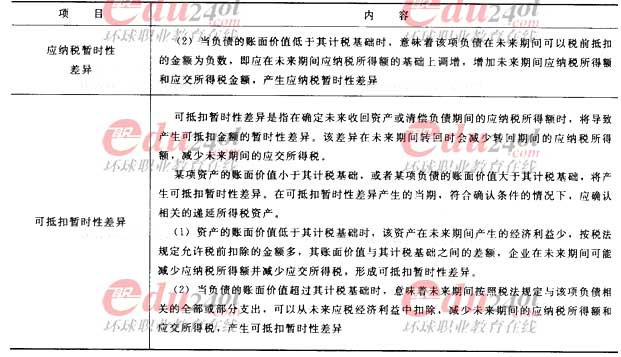 项 目 内 容
应纳税暂时性
差异
（2）当负债的账面价值低于其计税基础时，意味着该项负债在未来期间可以税前抵扣
的金额为负数，即应在未来期间应纳税所得额的基础上调增，增加未来期间应纳税所得额
和应交所得税金额，产生应纳税暂时性差异
可抵扣暂时性差异
可抵扣暂时性差异是指在确定未来收回资产或清偿负债期间的应纳税所得额时，将导致
产生可抵扣金额的暂时性差异。该差异在未来期间转回时会减少转回期间的应纳税所得
额，减少未来期间的应交所得税。
某项资产的账面价值小于其计税基础，或者某项负债的账面价值大于其计税基础，将产
生可抵扣暂时性差异。在可抵扣暂时性差异产生的当期，符合确认条件的情况下，应确认
相关的递延所得税资产。
（1）资产的账面价值低于其计税基础时，该资产在未来期间产生的经济利益少，按税法
规定允许税前扣除的金额多，其账面价值与其计税基础之间的差额，企业在未来期间可能
减少应纳税所得额并减少应交所得税，形成可抵扣暂时性差异。
（2）当负债的账面价值超过其计税基础时，意味着未来期间按照税法规定与该项负债相
关的全部或部分支出，可以从未来应税经济利益中扣除，减少未来期间的应纳税所得额和
应交所得税，产生可抵扣暂时性差异
edu24ol
.com
环球职业教育在线
edu24ol
.com
环球职业教育在线
edu24ol
.com
环球职业教育在线
edu24ol
.com
环球职业教育在线
edu24ol
.com
环球职业教育在线
edu24ol
.com
环球职业教育在线